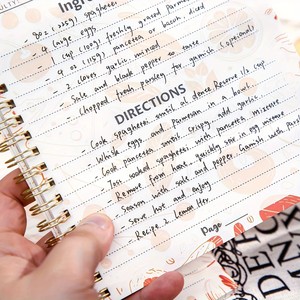 Ingr
- 8oz (225g) spaghetti
- 4 large eggs
- 1 cup (100g) freshly grated parmesan
- 4 oz (115g) pancetta or bacon, diced
- 2 cloves garlic, minced
- Salt and black pepper to taste
- Chopped fresh parsley for garnish (optional)
DIRECTIONS
- Cook spaghetti until al dente. Reserve 1/2 cup
- Whisk eggs and parmesan in a bowl.
- Cook pancetta until crispy, add garlic.
- Toss cooked spaghetti with pancetta mixture
- Remove from heat, quickly stir in egg mixture
- Season with salt and pepper. Garnish with parsley
- Serve hot and enjoy
- Recipe 2 Lemon Her
Page